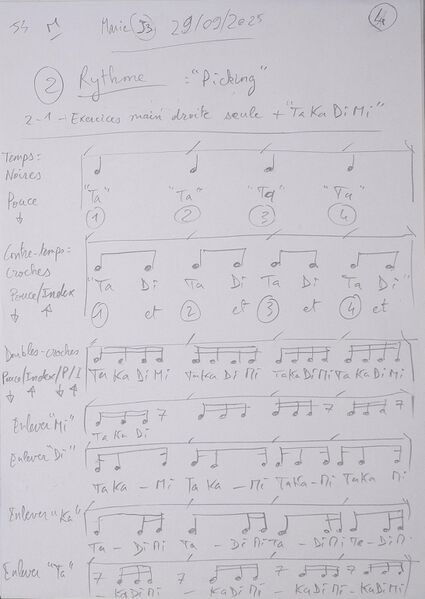 Marie 53 29/09/2025
② Rythme : "Picking"
2-1 - Exercices main droite seule + "TaKaDiMi"
Temps =
Noires
Pouce
"Ta" "Ta" "Ta" "Ta"
① ② ③ ④
Contre-temps =
Croches
Pouce/Index
"Ta Di Ta Di Ta Di Ta Di"
① et ② et ③ et ④ et
Doubles-croches
Pouce/Index/P/I
Ta Ka Di Mi TaKa Di Mi TaKaDiMi Ta KaDiMi
Enlever "Mi"
Ta Ka Di
Enlever "Di"
Ta Ka - Mi Ta Ka - Mi TaKa-Mi TaKa Mi
Enlever "Ka"
Ta - Di Mi Ta - Di Mi Ta - DiMi Ta - DiMi
Enlever "Ta"
- KaDiMi - KaDiMi - KaDiMi - KaDiMi